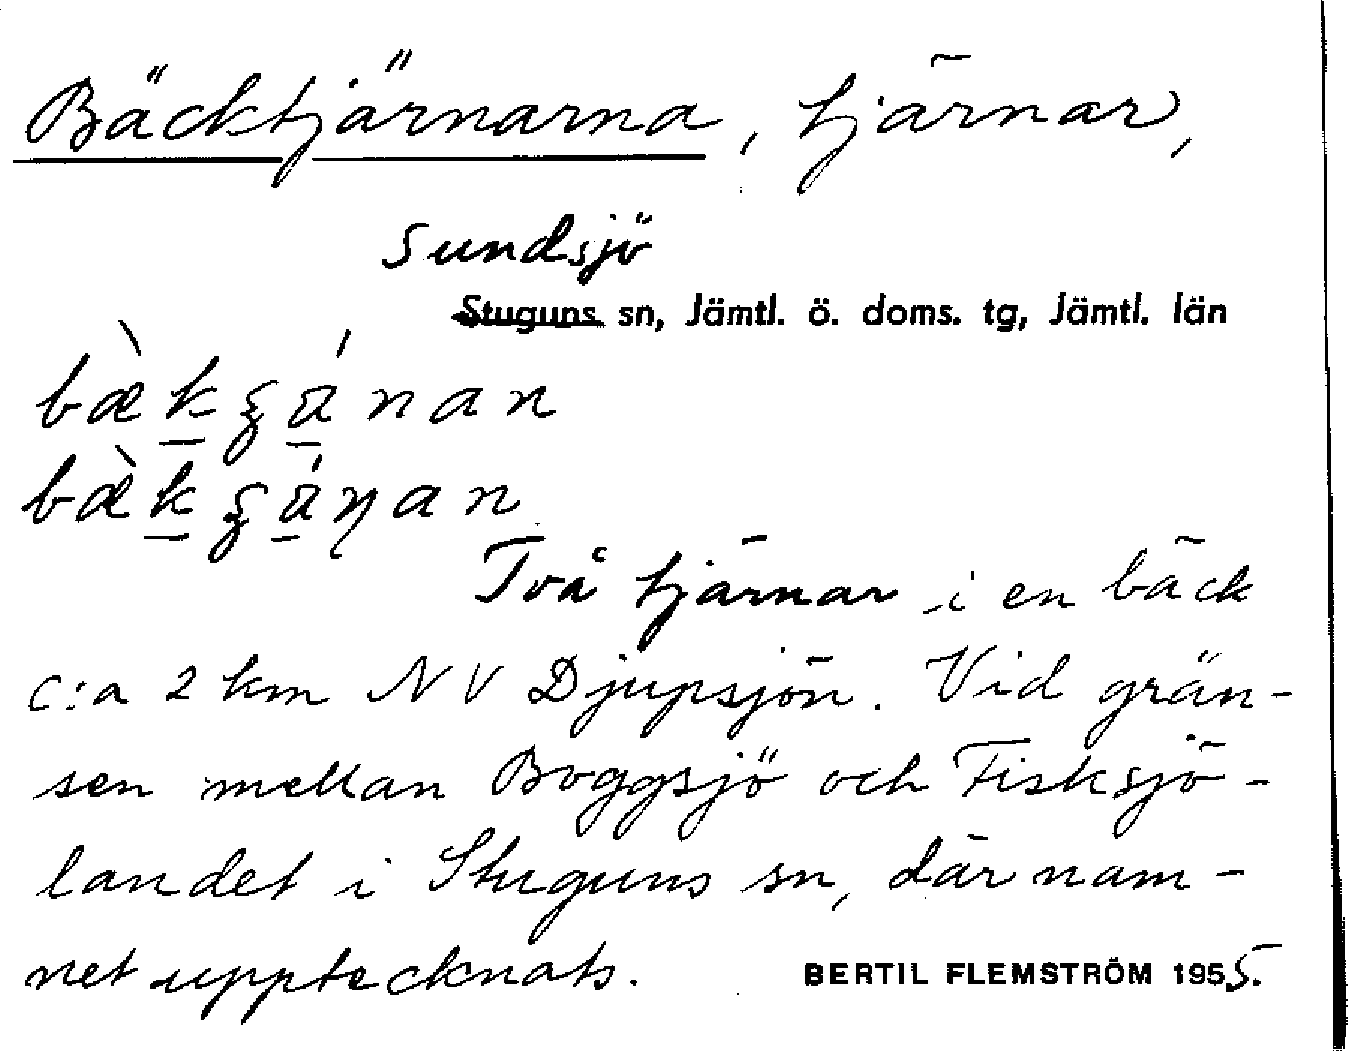 Bäcktjärnarna, tjärnar,
Sundsjö
Stuguns sn, Jämtl. ö. doms. tg, Jämtl. län
Två tjärnar i en bäck
c:a 2 km NV Djupsjön. Vid grän-
sen mellan Boggsjö och Fisksjö-
landet i Stuguns sn, där nam-
net upptecknats.
BERTIL FLEMSTRÖM 1955.